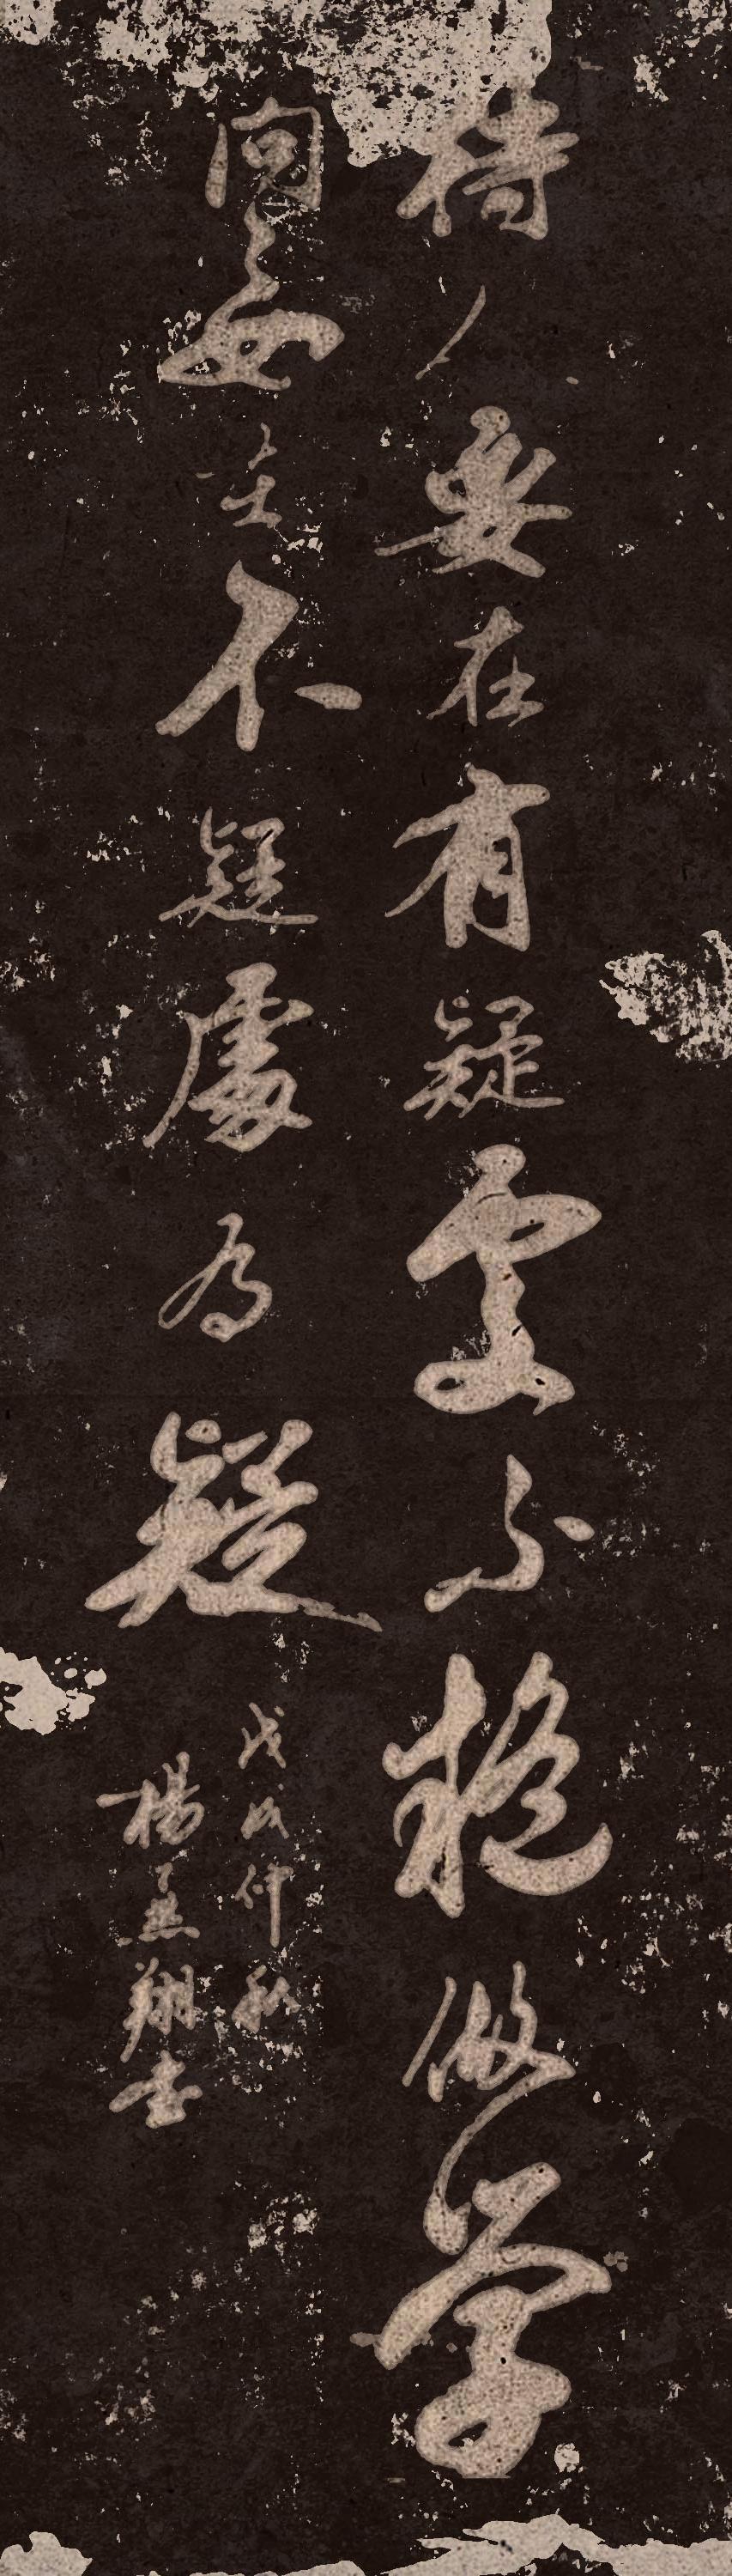 待人要在有疑處不疑做學
問要在不疑處為疑
戊戌仲秋
楊孟翔書